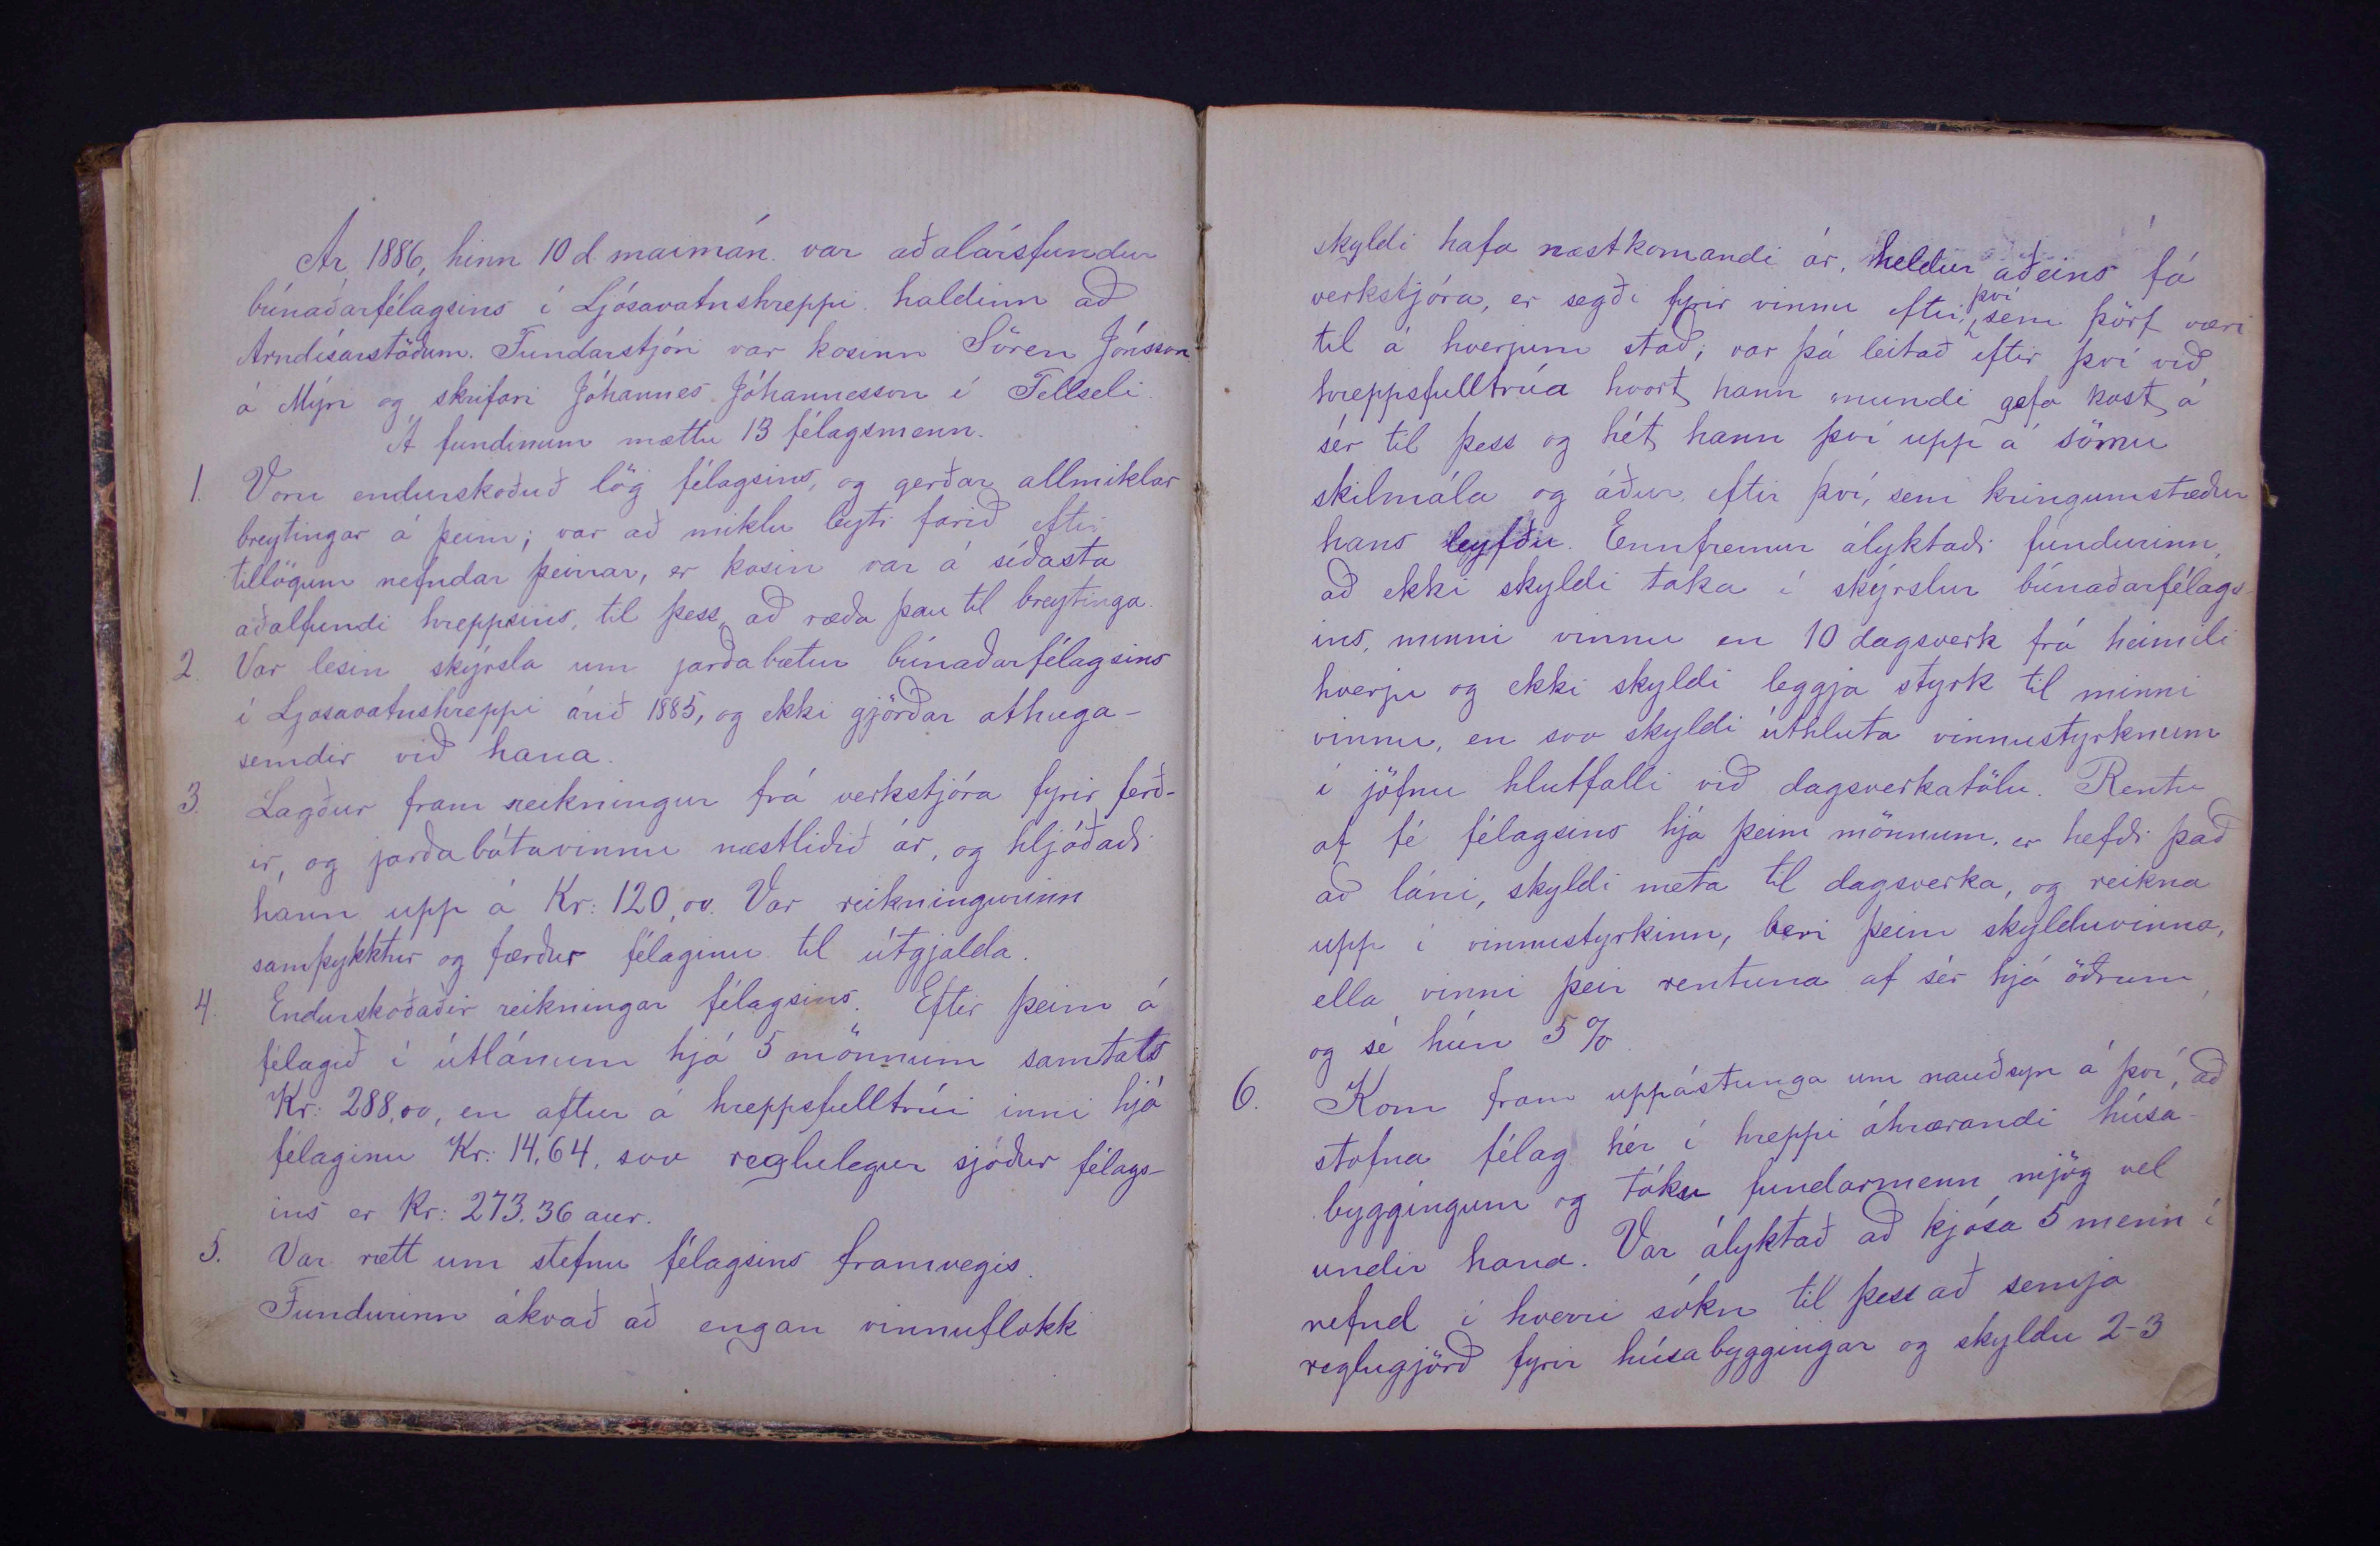 Ár 1886, hinn 10 d maimán. var aðalársfundur
búnaðarfélagsins í Ljósavatnshreppi haldinn að
Arndísarstöðum. Fundarstjóri var kosinn Sören Jónsson
á Mýri og skrifari Jóhannes Jóhannesson í Fellseli.
Á fundinum mættu 13 félagsmenn.
1. Voru endurskoðuð lög félagsins, og gerðar allmiklar
breytingar á þeim; var að miklu leyti farið eftir
tillögum nefndar þeirrar, er kosin var á síðasta
aðalfundi hreppsins, til þess að ræða þau til breytinga.
2. Var lesin skýrsla um jarðabætur búnaðarfélagsins
í Ljosavatnshreppi árið 1885, og ekki gjörðar athuga-
semdir við hana.
3. Lagður fram reikningur frá verkstjóra fyrir ferð-
ir, og jarðabótavinnu næstliðið ár, og hljóðaði
hann upp á Kr: 120,00. Var reikningurinn
samþykktur og færður félaginu til útgjalda.
4. Endurskoðaðir reikningar félagsins. Eftir þeim á
félagið í útlánum hjá 5 mönnum samtals
Kr: 288,00, en aftur á hreppsfulltrúi inni hjá
félaginu Kr: 14,64, svo reglulegur sjóður félags-
ins er Kr: 273.36 aur.
5. Var rætt um stefnu félagsins framvegis.
Fundurinn ákvað að engan vinnuflokk
skyldi hafa næstkomandi ár, heldur aðeins fá
verkstjóra, er segði fyrir vinnu eftir því sem þörf væri
til á hverjum stað; var þá leitað eftir því við
hreppsfulltrúa hvort hann mundi gefa kost á
sér til þess og hét hann því upp á sömu
skilmála og áður, eftir því, sem kringumstæður
hans leyfðu. Ennfremur ályktaði fundurinn,
að ekki skyldi taka í skýrslur búnaðarfélags
ins, minni vinnu en 10 dagsverk frá heimili
hverju og ekki skyldi leggja styrk til minni
vinnu, en svo skyldi úthluta vinnustyrknum
í jöfnu hlutfalli við dagsverkatölu. Rentu
af fé félagsins hjá þeim mönnum, er hefði það
að láni, skyldi meta til dagsverka, og reikna
upp í vinnustyrkinn, beri þeim skylduvinna,
ella vinni þeir rentuna af sér hjá öðrum,
og sé hún 5 %
6. Kom fram uppástunga um nauðsyn á því, að
stofna félag hér í hreppi áhrærandi húsa-
byggingum og tóku fundarmenn mjög vel
undir hana. Var ályktað að kjósa 5 menn í
nefnd í hverri sókn til þess að semja
reglugjörð fyrir húsabyggingar og skyldu 2-3